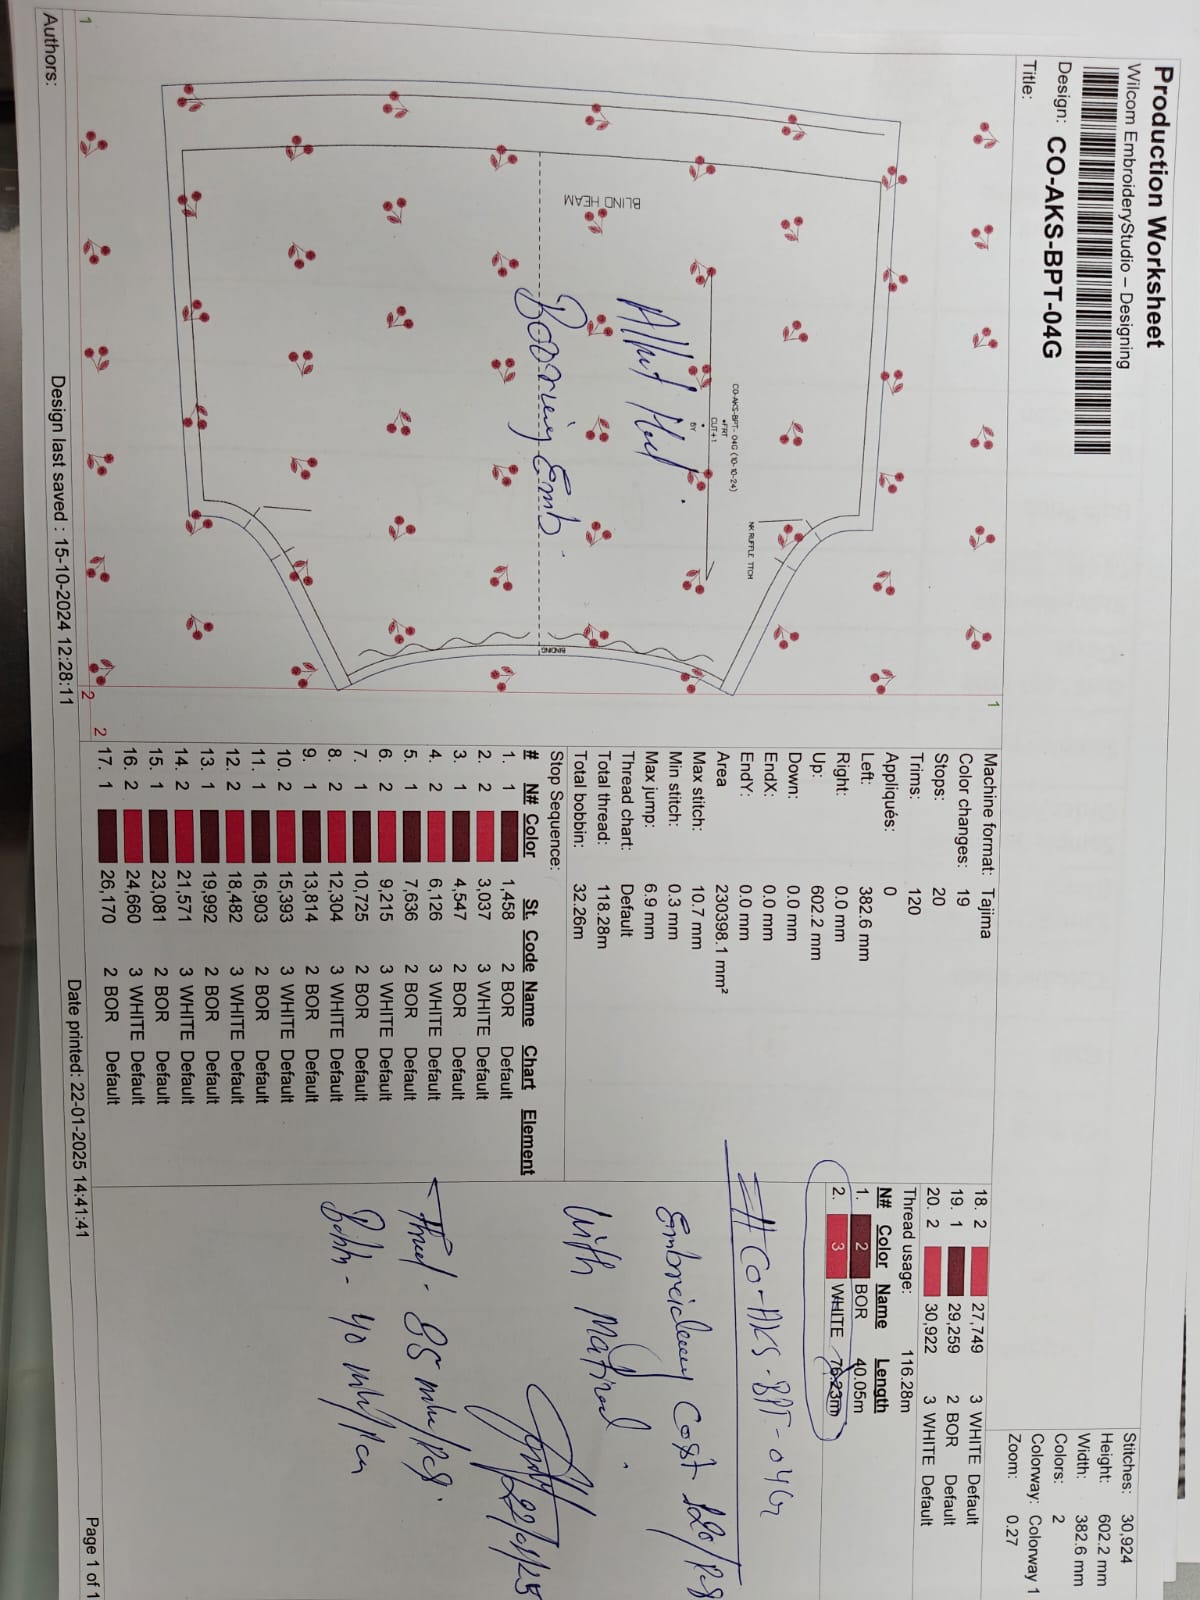 Production Worksheet
Wilcom EmbroideryStudio – Designing
Design: CO-AKS-BPT-04G
Title:
Stitches: 30,924
Height: 602.2 mm
Width: 382.6 mm
Colors: 2
Colorway: Colorway 1
Zoom: 0.27
1
1
2
2
CO-AKS-BPT- 04G (10-10-24)
FRT
CUT=1
BY
NK RUFFLE TTCH
BLIND HEAM
BINDING
Emb.
Machine format: Tajima
Color changes: 19
Stops: 20
Trims: 120
Appliqués: 0
Left: 382.6 mm
Right: 0.0 mm
Up: 602.2 mm
Down: 0.0 mm
EndX: 0.0 mm
EndY: 0.0 mm
Area 230398.1 mm²
Max stitch: 10.7 mm
Min stitch: 0.3 mm
Max jump: 6.9 mm
Thread chart: Default
Total thread: 118.28m
Total bobbin: 32.26m
Stop Sequence:
# N# Color St. Code Name Chart Element
1. 1 1,458 2 BOR Default
2. 2 3,037 3 WHITE Default
3. 1 4,547 2 BOR Default
4. 2 6,126 3 WHITE Default
5. 1 7,636 2 BOR Default
6. 2 9,215 3 WHITE Default
7. 1 10,725 2 BOR Default
8. 2 12,304 3 WHITE Default
9. 1 13,814 2 BOR Default
10. 2 15,393 3 WHITE Default
11. 1 16,903 2 BOR Default
12. 2 18,482 3 WHITE Default
13. 1 19,992 2 BOR Default
14. 2 21,571 3 WHITE Default
15. 1 23,081 2 BOR Default
16. 2 24,660 3 WHITE Default
17. 1 26,170 2 BOR Default
18. 2 27,749 3 WHITE Default
19. 1 29,259 2 BOR Default
20. 2 30,922 3 WHITE Default
Thread usage: 116.28m
N# Color Name Length
1. 2 BOR 40.05m
2. 3 WHITE 76.23m
# CO-AKS-BPT-04G
Cost 120/Pcs
With
85
40
22/01/25
Authors:
Design last saved : 15-10-2024 12:28:11
Date printed: 22-01-2025 14:41:41
Page 1 of 1